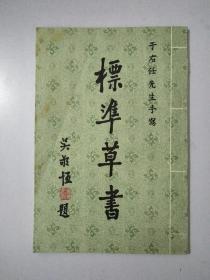 于右任先生手寫
標準草書
吳敬恆題